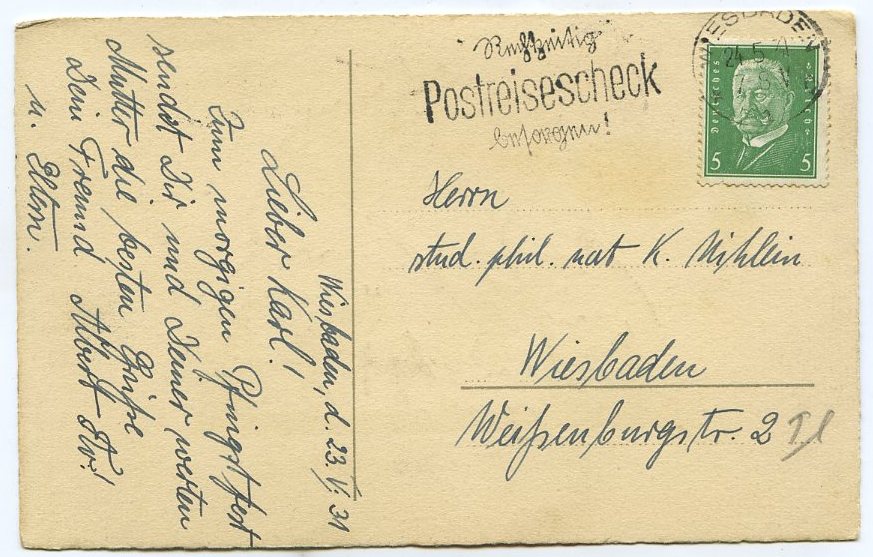 Wiesbaden, d. 23.V.31
Lieber Karl!
Zum morgigen Pfingstfest
sendet Dir und Deiner werten
Mutter die besten Grüße
Dein Freund Albert Fw!
u. Eltern.
Rechtzeitig
Postreisescheck
besorgen!
WIESBADEN
24.5.
Deutsches Reich
5 5
Herrn
stud. phil. nat K. Nihlein
Wiesbaden
Weißenburgstr. 2